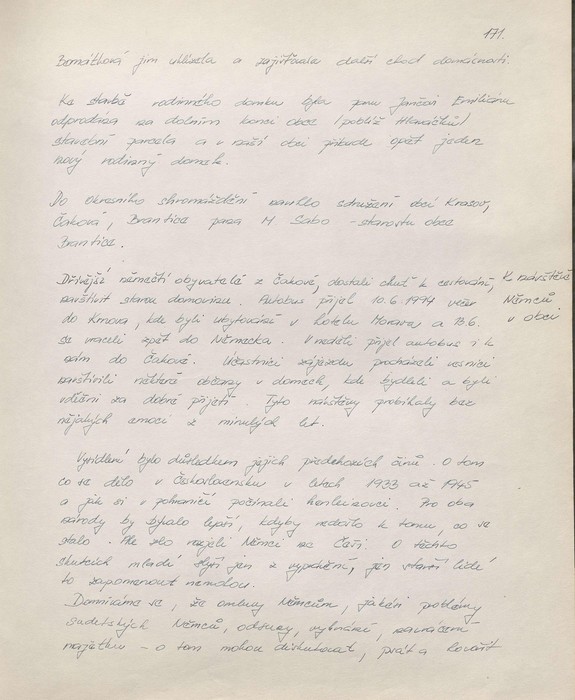 171.
jim uklízela a zajišťovala další chod domácnosti.
Ke stavbě rodinného domku byla panu Jančovi Emiliánu
odprodána na dolním konci obce /poblíž Hlaváčků/
stavební parcela a v naší obci přibude opět jeden
nový rodinný domek.
Do Okresního shromáždění navrhlo sdružení obcí Krasov,
Čaková, Brantice pana M. Sabo - starostu obce
Brantice.
Dřívější němečtí obyvatelé z Čakové, dostali chuť k cestování,
navštívit starou domovinu. Autobus přijel 10.6.1994 večer
do Krnova, kde byli ubytováni v hotelu Morava, a 13.6.
se vraceli zpět do Německa. V neděli přijel autobus i k
nám do Čakové. Účastníci zájezdu procházeli vesnicí
navštívili některé občany v domech, kde bydleli a byli
vděšni za dobré přijetí. Tyto návštěvy probíhaly bez
nějakých emocí z minulých let.
K návštěvě
Němců
v obci
Vysídlení bylo důsledkem jejich předchozích činů. O tom
co se dělo v Československu v letech 1933 až 1945
a jak si v pohraničí počínali henleinovci. Pro oba
národy by bývalo lepší, kdyby nedošlo k tomu, co se
stalo. Ale zlo začali Němci ne Češi. O těchto
skutcích mladí slyší jen z vyprávění, jen starší lidé
to zapomenout nemohou.
Domníváme se, že omluvy Němcům, jakési problémy
sudetských Němců, odsuny, vyhnání, navrácení
majetku - o tom mohou diskutovat, psát a hovořit